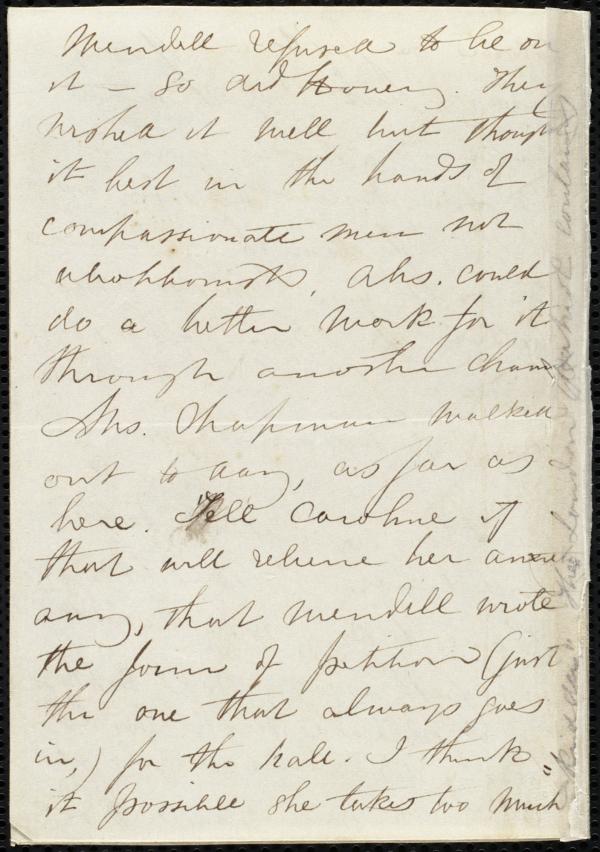 Mendell refused to be on
it – So did Hovey. They
wished it well but though
it best in the hands of
compassionate men not
abolitionists. Abs. could
do a better work for it
through another chan
Mrs. Chapman walked
out to day, as far as
here. Tell Caroline if
that will relieve her an
any, that Mendell wrote
the form of petition (just
the one that always goes
in,) for the Hall. I think
it possible she takes too much
London